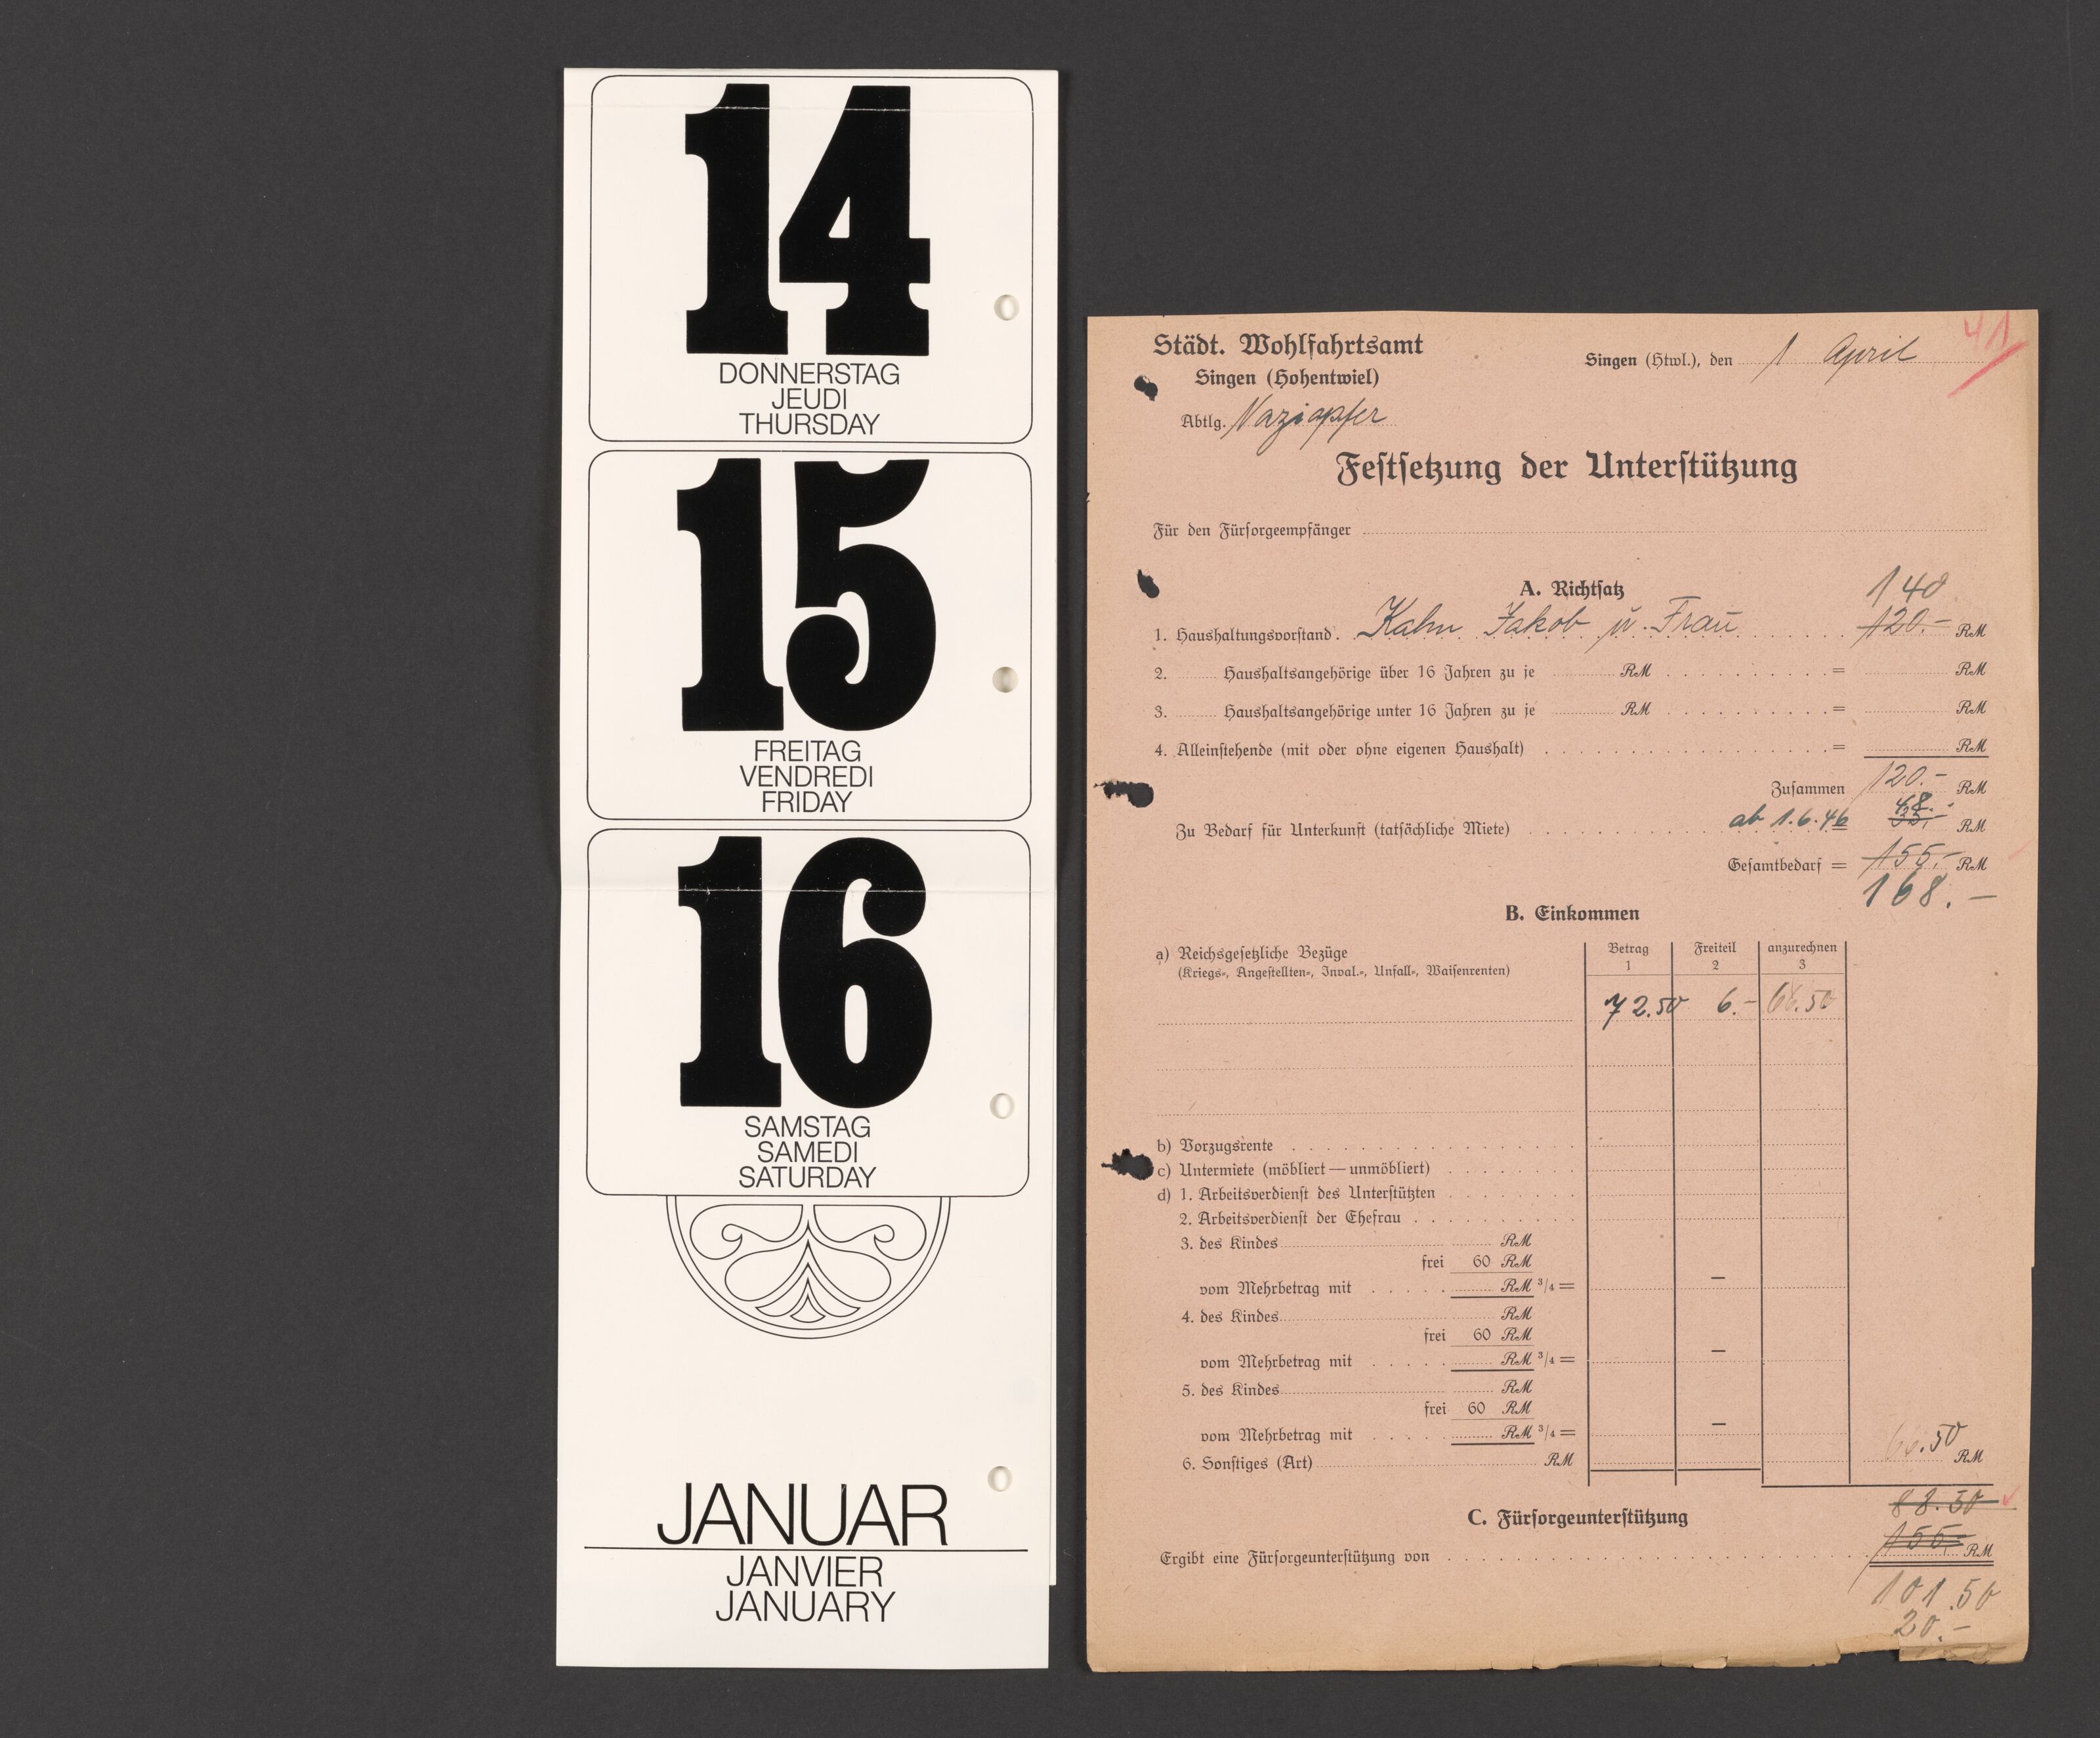 14
DONNERSTAG
JEUDI
THURSDAY
15
FREITAG
VENDREDI
FRIDAY
16
SAMSTAG
SAMEDI
SATURDAY
JANUAR
JANVIER
JANUARY
41
Städt. Wohlfahrtsamt
Singen (Hohentwiel)
Singen (Htwl.), den 1 April
Abtlg. Naziopfer
Festsetzung der Unterstützung
Für den Fürsorgeempfänger
A. Richtsatz
140
1. Haushaltungsvorstand. Kahn Jakob u. Frau 120.- RM
2. Haushaltsangehörige über 16 Jahren zu je RM = RM
3. Haushaltsangehörige unter 16 Jahren zu je RM = RM
4. Alleinstehende (mit oder ohne eigenen Haushalt) = RM
Zusammen 120.- RM
48.-
Zu Bedarf für Unterkunft (tatsächliche Miete) ab 1.6.46 35.- RM
Gesamtbedarf = 155.- RM
168.-
B. Einkommen
a) Reichsgesetzliche Bezüge
(Kriegs-, Angestellten-, Inval.-, Unfall-, Waisenrenten)
Betrag Freiteil anzurechnen
1 2 3
72.50 6.- 66.50
b) Vorzugsrente
c) Untermiete (möbliert — unmöbliert)
d) 1. Arbeitsverdienst des Unterstützten
2. Arbeitsverdienst der Ehefrau
3. des Kindes RM
frei 60 RM
vom Mehrbetrag mit RM 3/4 = —
4. des Kindes RM
frei 60 RM
vom Mehrbetrag mit RM 3/4 = —
5. des Kindes RM
frei 60 RM
vom Mehrbetrag mit RM 3/4 = —
6. Sonstiges (Art) RM 66.50 RM
88.50
C. Fürsorgeunterstützung
Ergibt eine Fürsorgeunterstützung von 155.- RM
101.50
20.-